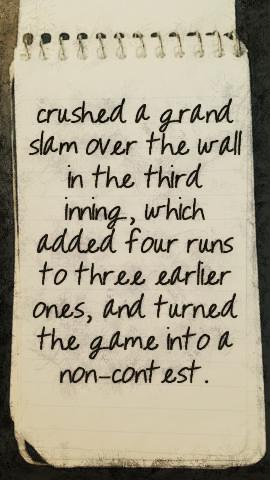 crushed a grand
slam over the wall
in the third
inning, which
added four runs
to three earlier
ones, and turned
the game into a
non-contest.